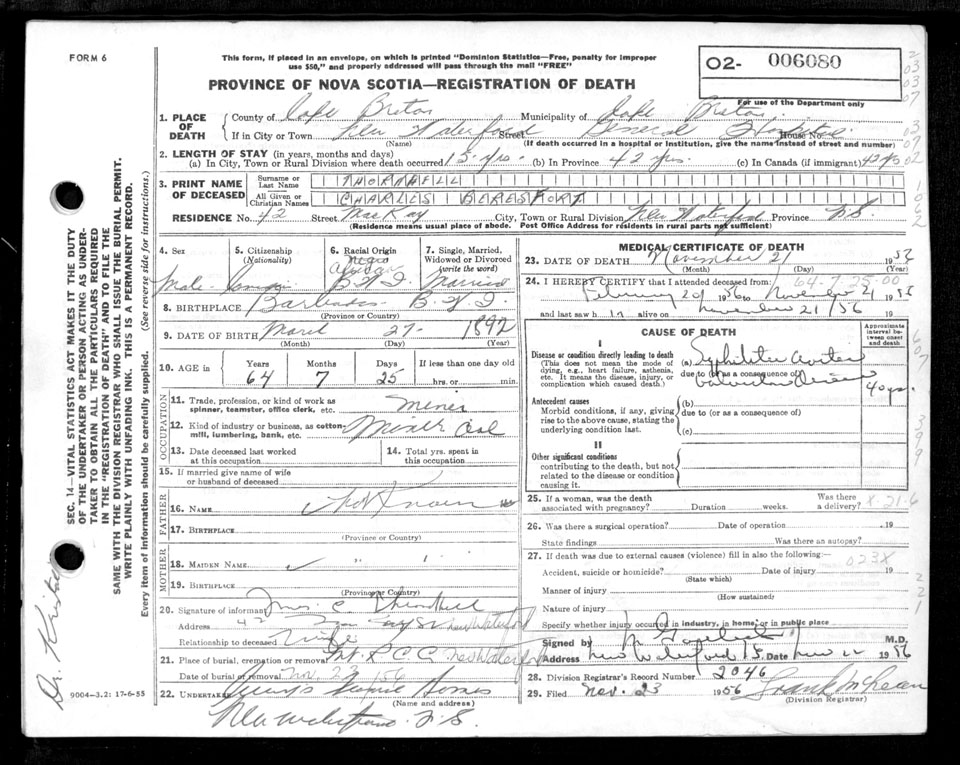 FORM 6
This form, if placed in an envelope, on which is printed "Dominion Statistics—Free, penalty for improper
use $50," and properly addressed will pass through the mail "FREE"
O2- 006080
PROVINCE OF NOVA SCOTIA—REGISTRATION OF DEATH
For use of the Department only
1. PLACE OF DEATH County of Cape Breton Municipality of Cape Breton
If in City or Town New Waterford Street General Hospital House No.
(Name) (If death occurred in a hospital or Institution, give the name instead of street and number)
2. LENGTH OF STAY (in years, months and days)
(a) In City, Town or Rural Division where death occurred 15 yrs. (b) In Province 42 yrs. (c) In Canada (if immigrant) 42 yrs
3. PRINT NAME OF DECEASED Surname or Last Name THORNHILL
All Given or Christian Names CHARLES BERESFORT
RESIDENCE No. 42 Street MacKay City, Town or Rural Division New Waterford Province N.S.
(Residence means usual place of abode. Post Office Address for residents in rural parts not sufficient)
4. Sex Male
5. Citizenship (Nationality)
6. Racial Origin Negro B.W.I.
7. Single, Married, Widowed or Divorced (write the word) Married
8. BIRTHPLACE Barbados B.W.I.
(Province or Country)
9. DATE OF BIRTH March 27- 1892
(Month) (Day) (Year)
10. AGE in Years 64 Months 7 Days 25 If less than one day old hrs. or min.
OCCUPATION
11. Trade, profession, or kind of work as spinner, teamster, office clerk, etc. Miner
12. Kind of industry or business, as cotton mill, lumbering, bank, etc. Coal
13. Date deceased last worked at this occupation
14. Total yrs. spent in this occupation
15. If married give name of wife or husband of deceased
FATHER
16. NAME Not Known
17. BIRTHPLACE
(Province or Country)
MOTHER
18. MAIDEN NAME " "
19. BIRTHPLACE
(Province or Country)
20. Signature of informant Mrs. C Thornhill
Address 42 St New Waterford
Relationship to deceased Wife
21. Place of burial, cremation or removal New Waterford
Date of burial or removal Nov. 23 /56
22. UNDERTAKER Homes
(Name and address)
New Waterford. N.S.
MEDICAL CERTIFICATE OF DEATH
23. DATE OF DEATH November 21 19
(Month) (Day) (Year)
24. I HEREBY CERTIFY that I attended deceased from
February 20 1956 to November 21 19
and last saw h alive on November 21/56 19
64-7-25-00
CAUSE OF DEATH
Approximate interval between onset and death
I
Disease or condition directly leading to death
(This does not mean the mode of dying, e.g., heart failure, asthenia, etc. It means the disease, injury, or complication which caused death.)
(a) Syphilitic
due to (or as a consequence of)
40 yrs.
Antecedent causes
Morbid conditions, if any, giving rise to the above cause, stating the underlying condition last.
(b)
due to (or as a consequence of)
(c)
II
Other significant conditions
contributing to the death, but not related to the disease or condition causing it.
25. If a woman, was the death associated with pregnancy? Duration weeks. Was there a delivery?
X-21-6
26. Was there a surgical operation? Date of operation 19
State findings Was there an autopsy?
27. If death was due to external causes (violence) fill in also the following:—
023X
Accident, suicide or homicide? Date of injury 19
(State which)
Manner of injury
(How sustained)
Nature of injury
Specify whether injury occurred in industry, in home, or in public place
Signed by M.D.
Address New Waterford Date Nov 1956
28. Division Registrar's Record Number 2046
29. Filed Nov. 23 1956
(Division Registrar)
SEC. 14—VITAL STATISTICS ACT MAKES IT THE DUTY
OF THE UNDERTAKER OR PERSON ACTING AS UNDER-
TAKER TO OBTAIN ALL THE PARTICULARS REQUIRED
IN THE "REGISTRATION OF DEATH" AND TO FILE THE
SAME WITH THE DIVISION REGISTRAR WHO SHALL ISSUE THE BURIAL PERMIT.
WRITE PLAINLY WITH UNFADING INK. THIS IS A PERMANENT RECORD.
Every item of information should be carefully supplied. (See reverse side for instructions.)
Dr.
9004-3.2: 17-6-55